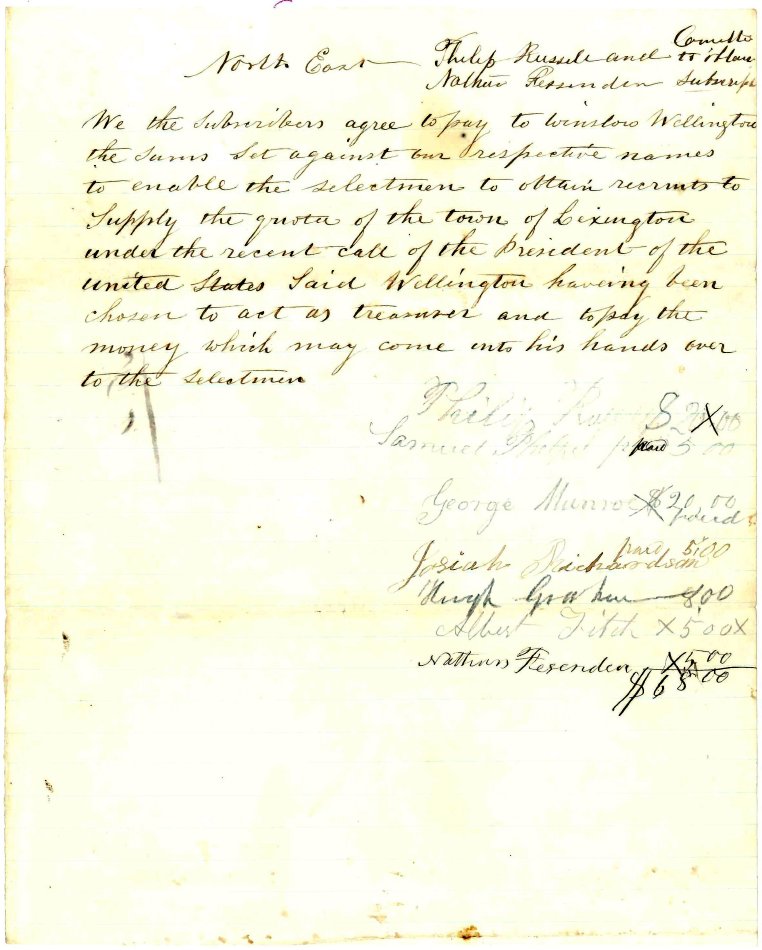 North East Philip Russell and Comitte
Nathan Fessenden to obtain
We the Subscribers agree to pay to Winslow Wellington
the Sums Set against our respective names
to enable the selectmen to obtain recruits to
Supply the quota of the town of Lexington
under the recent call of the President of the
United States Said Wellington haveing been
chosen to act as treasurer and to pay the
money which may come into his hands over
to the selectmen
Philip Russell $ 20.00
Samuel paid 5 00
George Munroe X $ 20,00
paid
paid 5.00
Josiah Richardson
Hugh Graham 8.00
Albert Fitch X 5,00 X
Nathan Fesenden X 5.00
$ 68 00